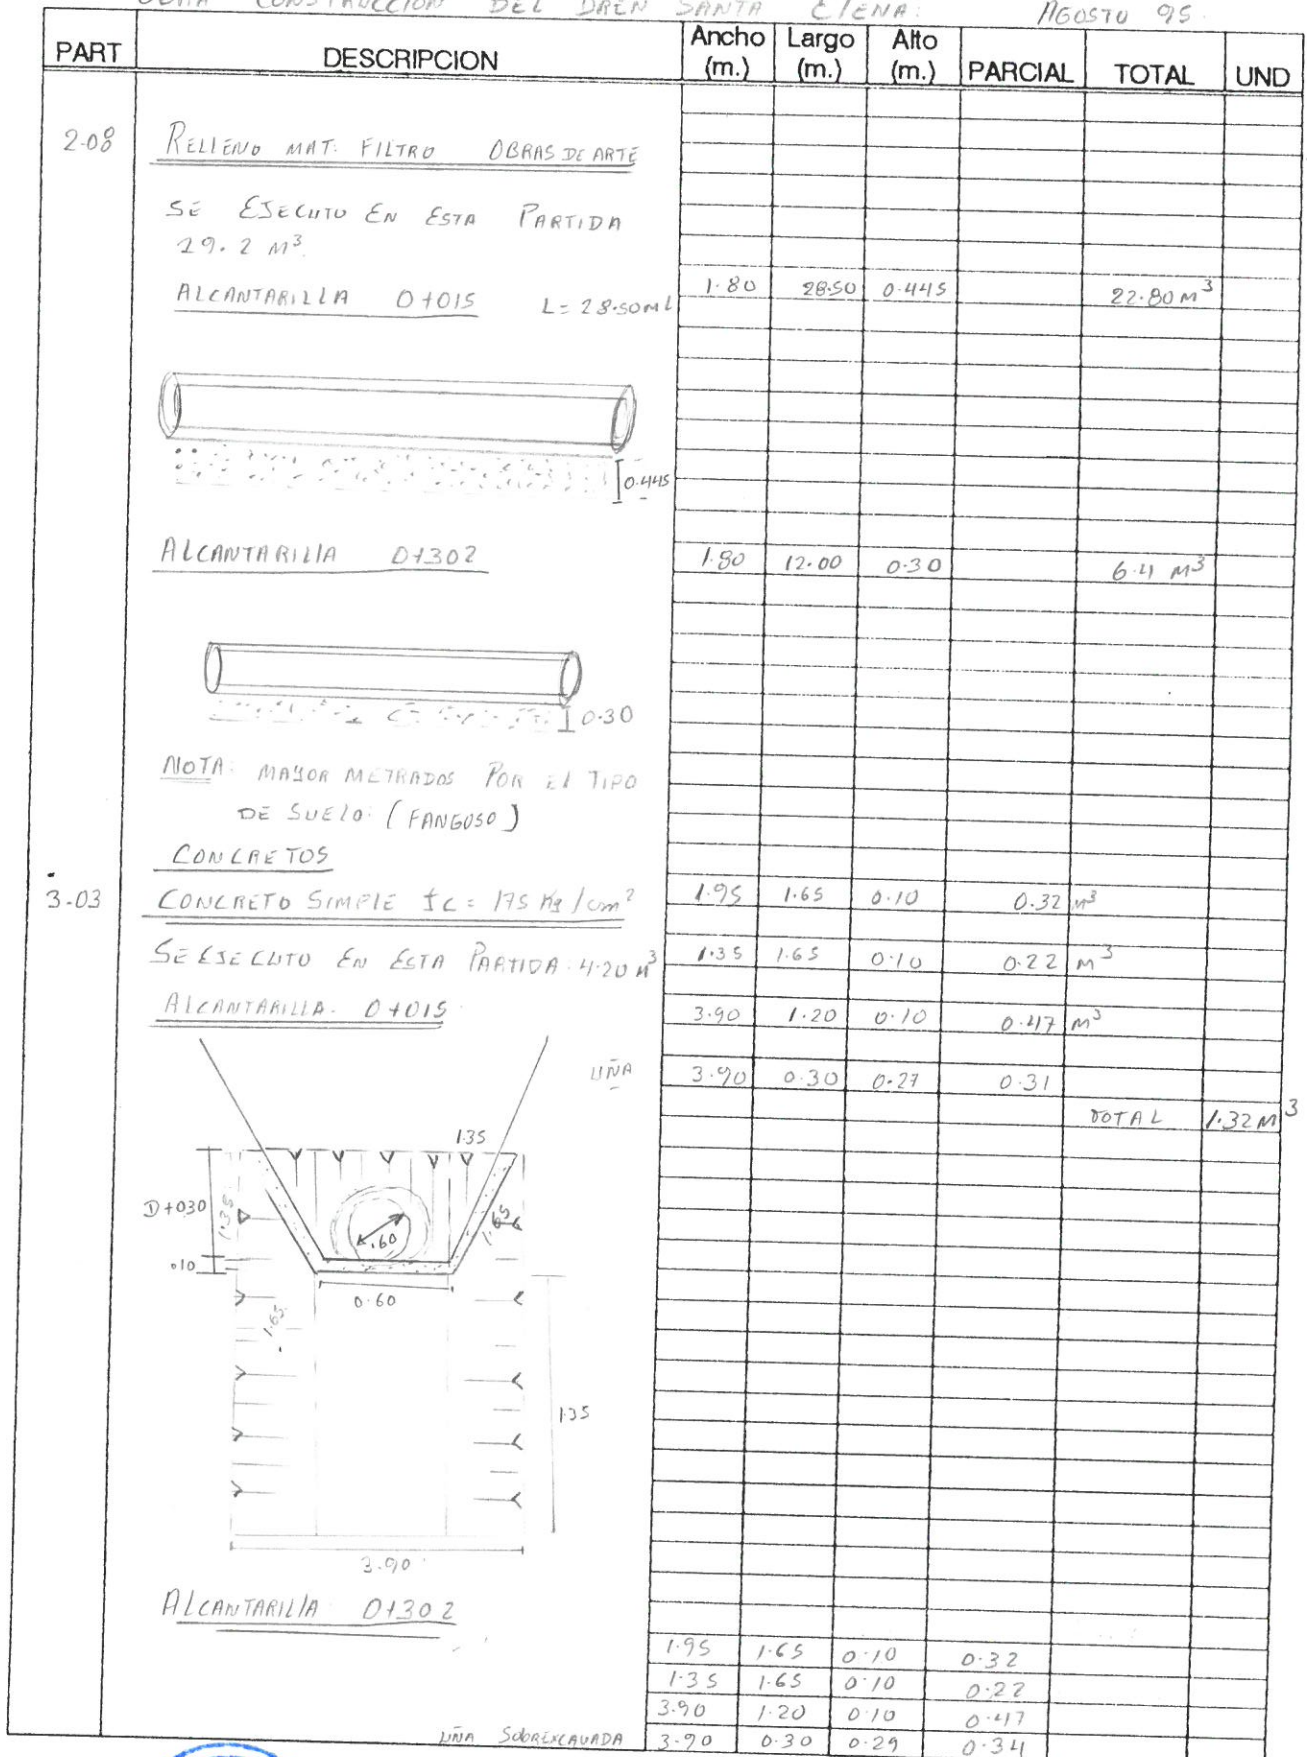 OBRA CONSTRUCCION DEL DREN SANTA ElENA: AGOSTO 95.
PART DESCRIPCION Ancho (m.) Largo (m.) Alto (m.) PARCIAL TOTAL UND
2-08 RELLENO MAT. FILTRO OBRAS DE ARTE
SE EJECUTO EN ESTA PARTIDA
29.2 M³.
ALCANTARILLA 0+015 L=28.50ml 1.80 28.50 0.445 22.80 M³
0.445
ALCANTARILLA 0+302 1.80 12.00 0.30 6.4 M³
0.30
NOTA: MAYOR METRADOS POR EL TIPO
DE SUELO: (FANGOSO)
CONCRETOS
3-03 CONCRETO SIMPLE fc = 175 Kg/cm² 1.95 1.65 0.10 0.32 m³
SE EJECUTO EN ESTA PARTIDA. 4.20 M³ 1.35 1.65 0.10 0.22 m³
ALCANTARILLA. 0+015. 3.90 1.20 0.10 0.47 m³
UÑA 3.90 0.30 0.27 0.31
TOTAL 1.32 M³
1.35
D+030 1.35 .60 1.65
.10
0.60
1.65
1.35
3.90
ALCANTARILLA 0+302
1.95 1.65 0.10 0.32
1.35 1.65 0.10 0.22
3.90 1.20 0.10 0.47
UÑA SOBREXCAVADA 3.90 0.30 0.29 0.34